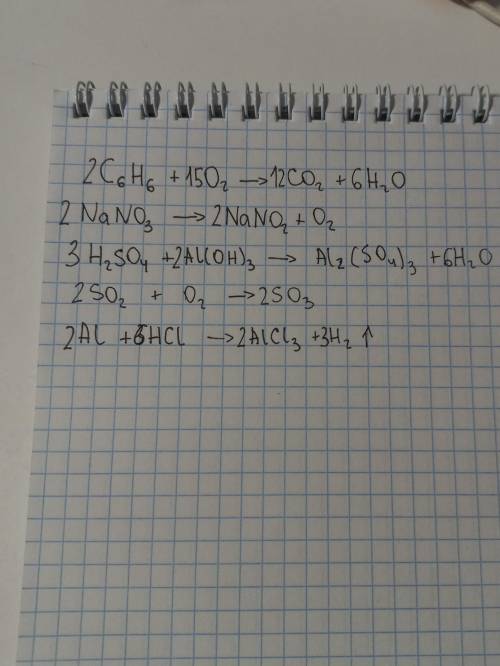 2C₆H₆ + 15O₂ → 12CO₂ + 6H₂O
2 NaNO₃ → 2NaNO₂ + O₂
3 H₂SO₄ + 2Al(OH)₃ → Al₂(SO₄)₃ + 6H₂O
2SO₂ + O₂ → 2SO₃
2Al + 6HCl → 2AlCl₃ + 3H₂ ↑